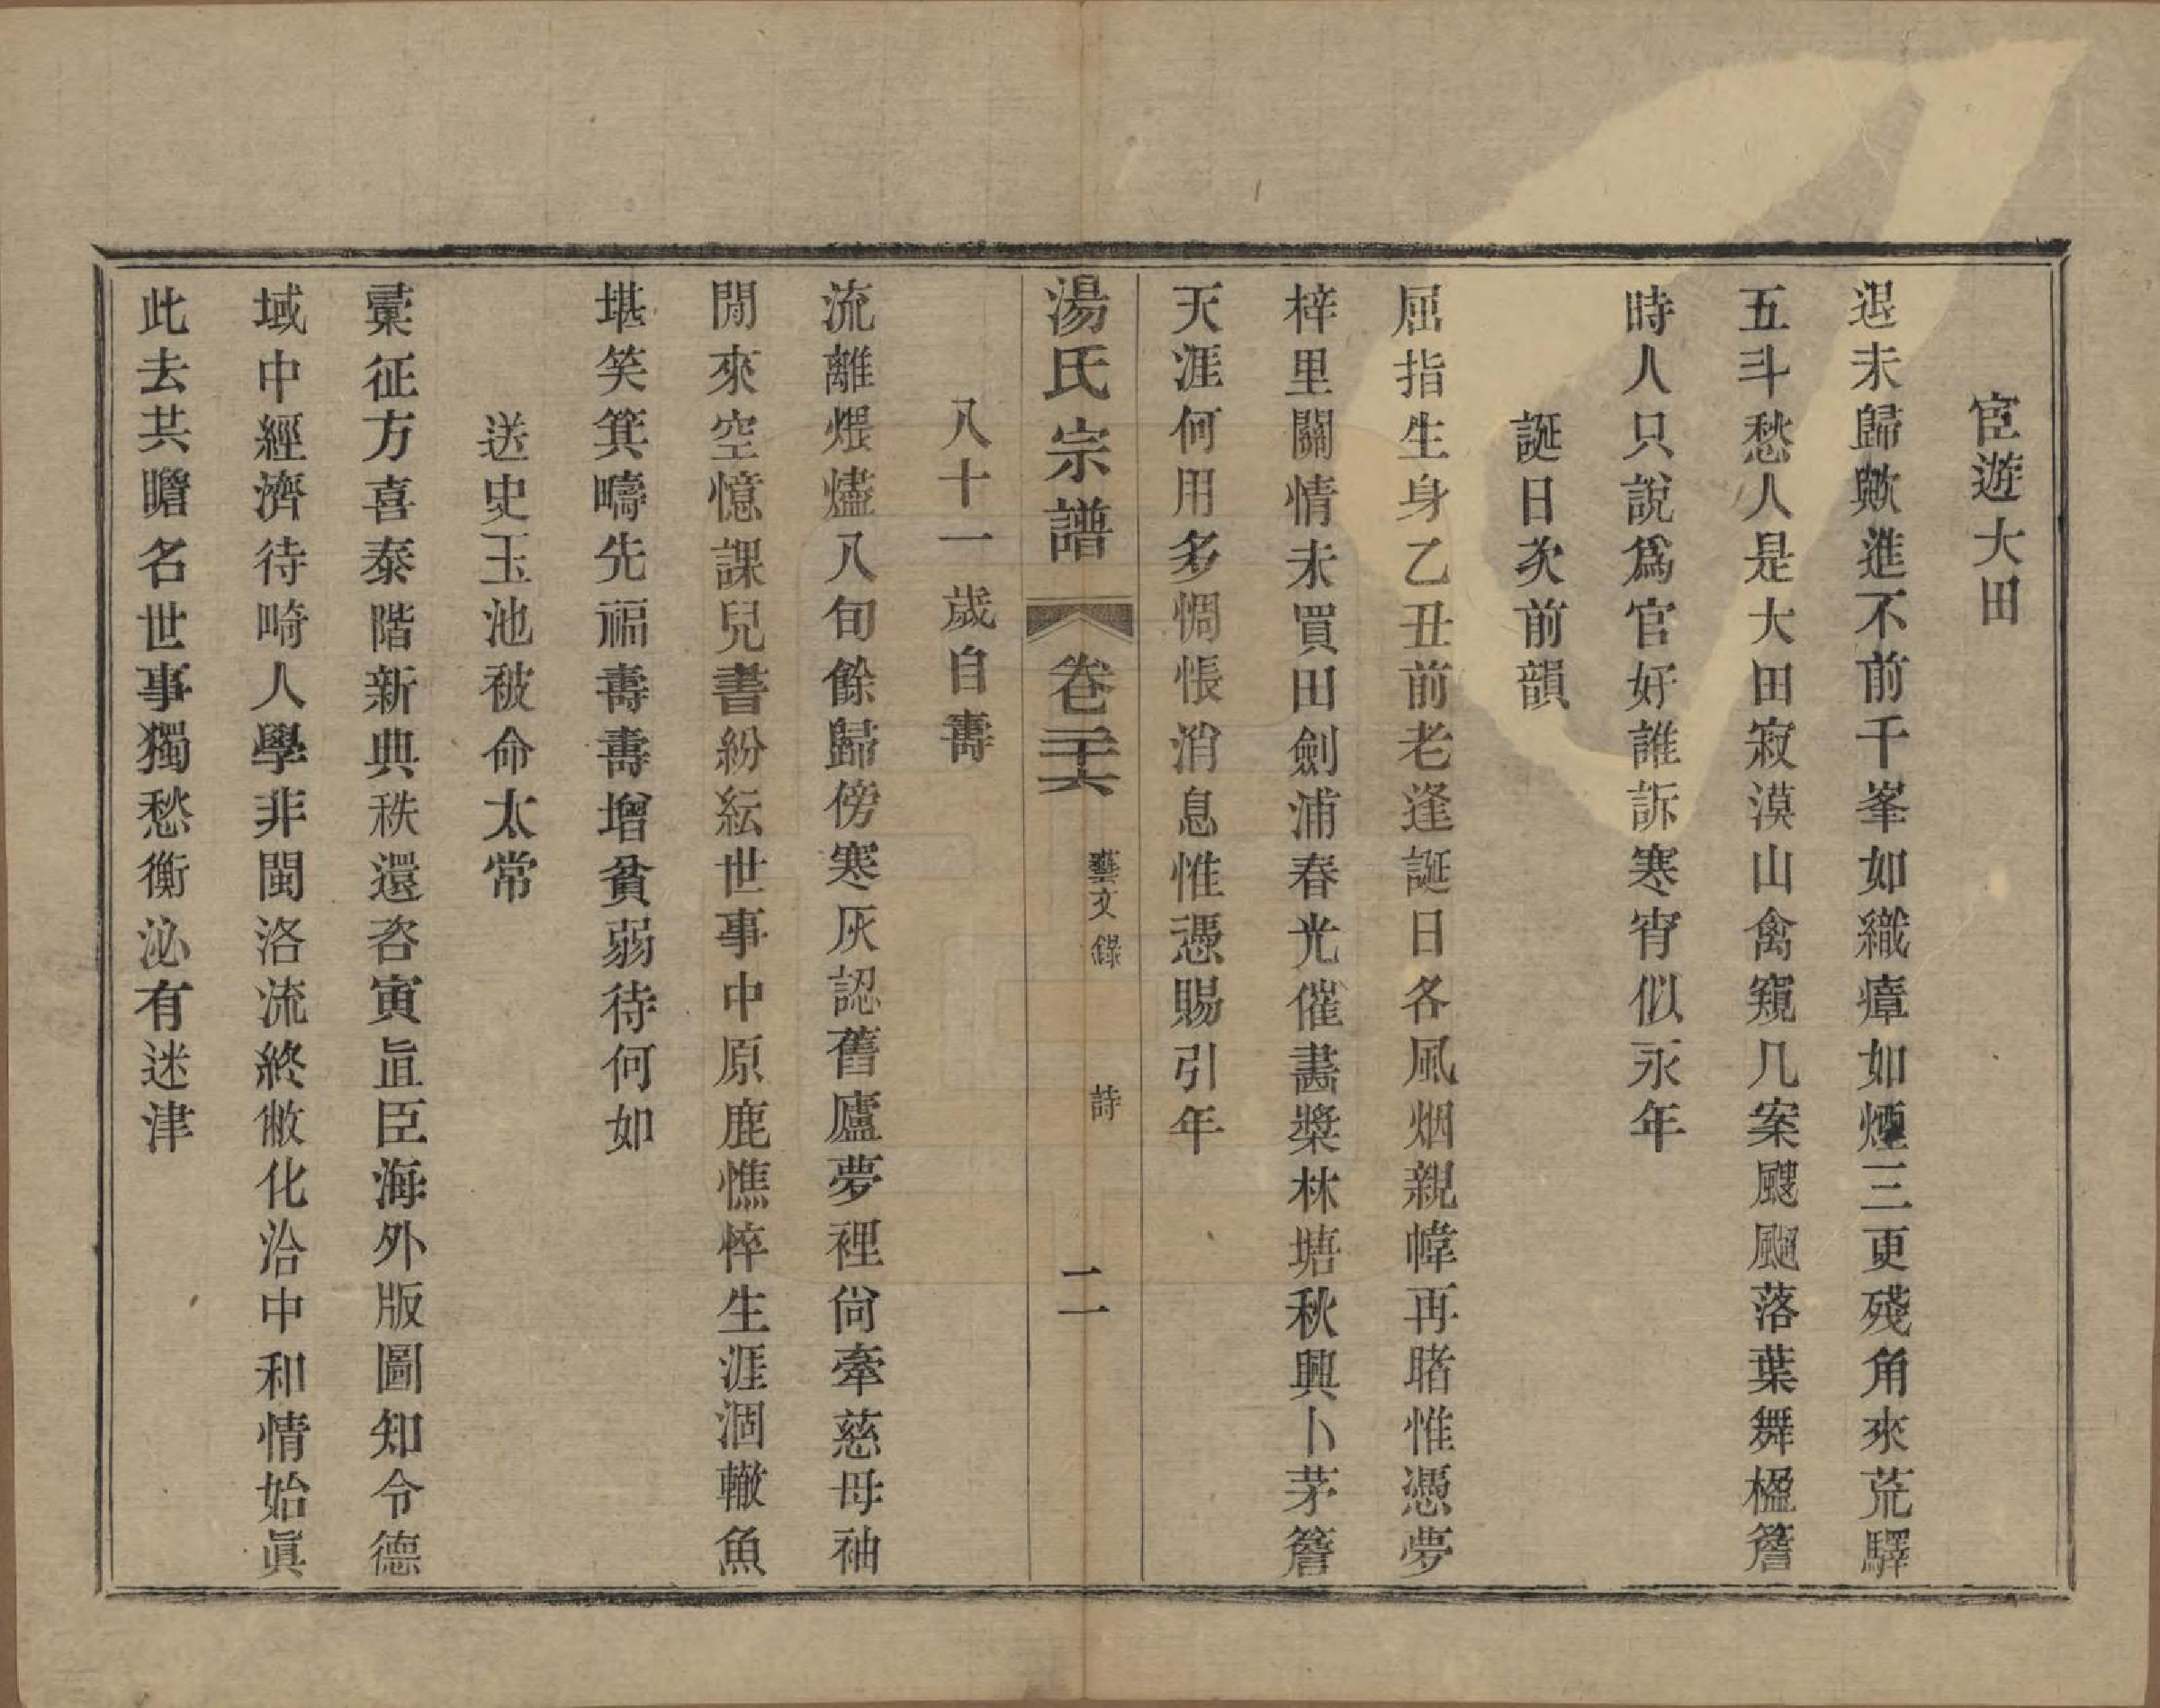 宦遊大田
退未歸歟進不前千峯如織瘴如煙三更殘角來荒驛
五斗愁人是大田寂漠山禽窺几案颼颼落葉舞楹簷
時人只說爲官好誰訴寒宵似永年
誕日次前韻
屈指生身乙丑前老逢誕日各風烟親幃再睹惟憑夢
梓里關情未買田劍浦春光催畵槳林塘秋興卜茅簷
天涯何用多惆悵消息惟憑賜引年
湯氏宗譜
卷二十六
藝文錄
詩
二
八十一歲自壽
流離煨燼八旬餘歸傍寒灰認舊廬夢裡尙牽慈母袖
閒來空憶課兒書紛紜世事中原鹿憔悴生涯涸轍魚
堪笑箕疇先福壽壽增貧弱待何如
送史玉池被命太常
彙征方喜泰階新典秩還咨寅直臣海外版圖知令德
域中經濟待畸人學非閩洛流終敝化洽中和情始眞
此去共瞻名世事獨愁衡泌有迷津